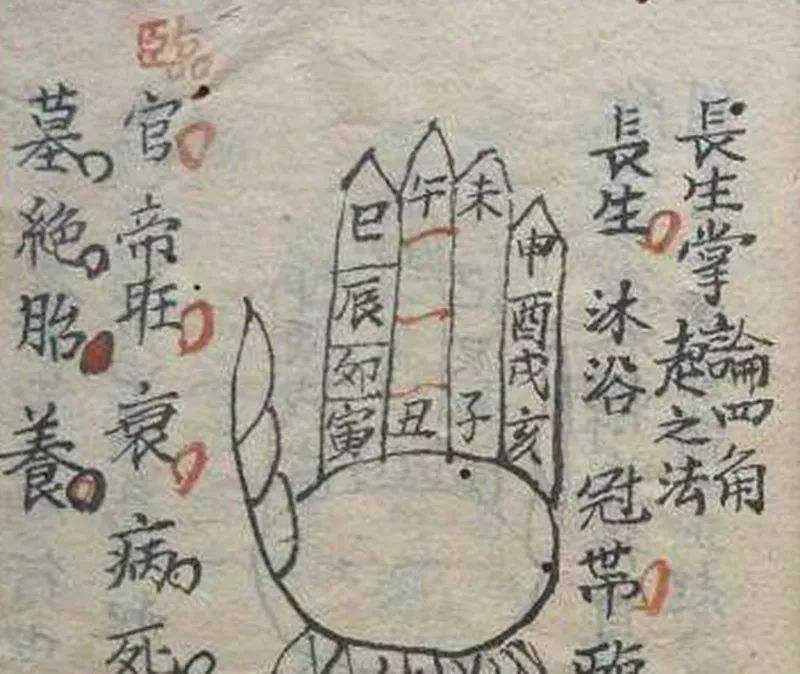 長生掌
論四角
起之法
長生 沐浴 冠帯 臨
臨
官 帝旺 衰 病 死
墓 絶 胎 養
巳
辰
卯
寅
午
丑
未
子
申
酉
戌
亥